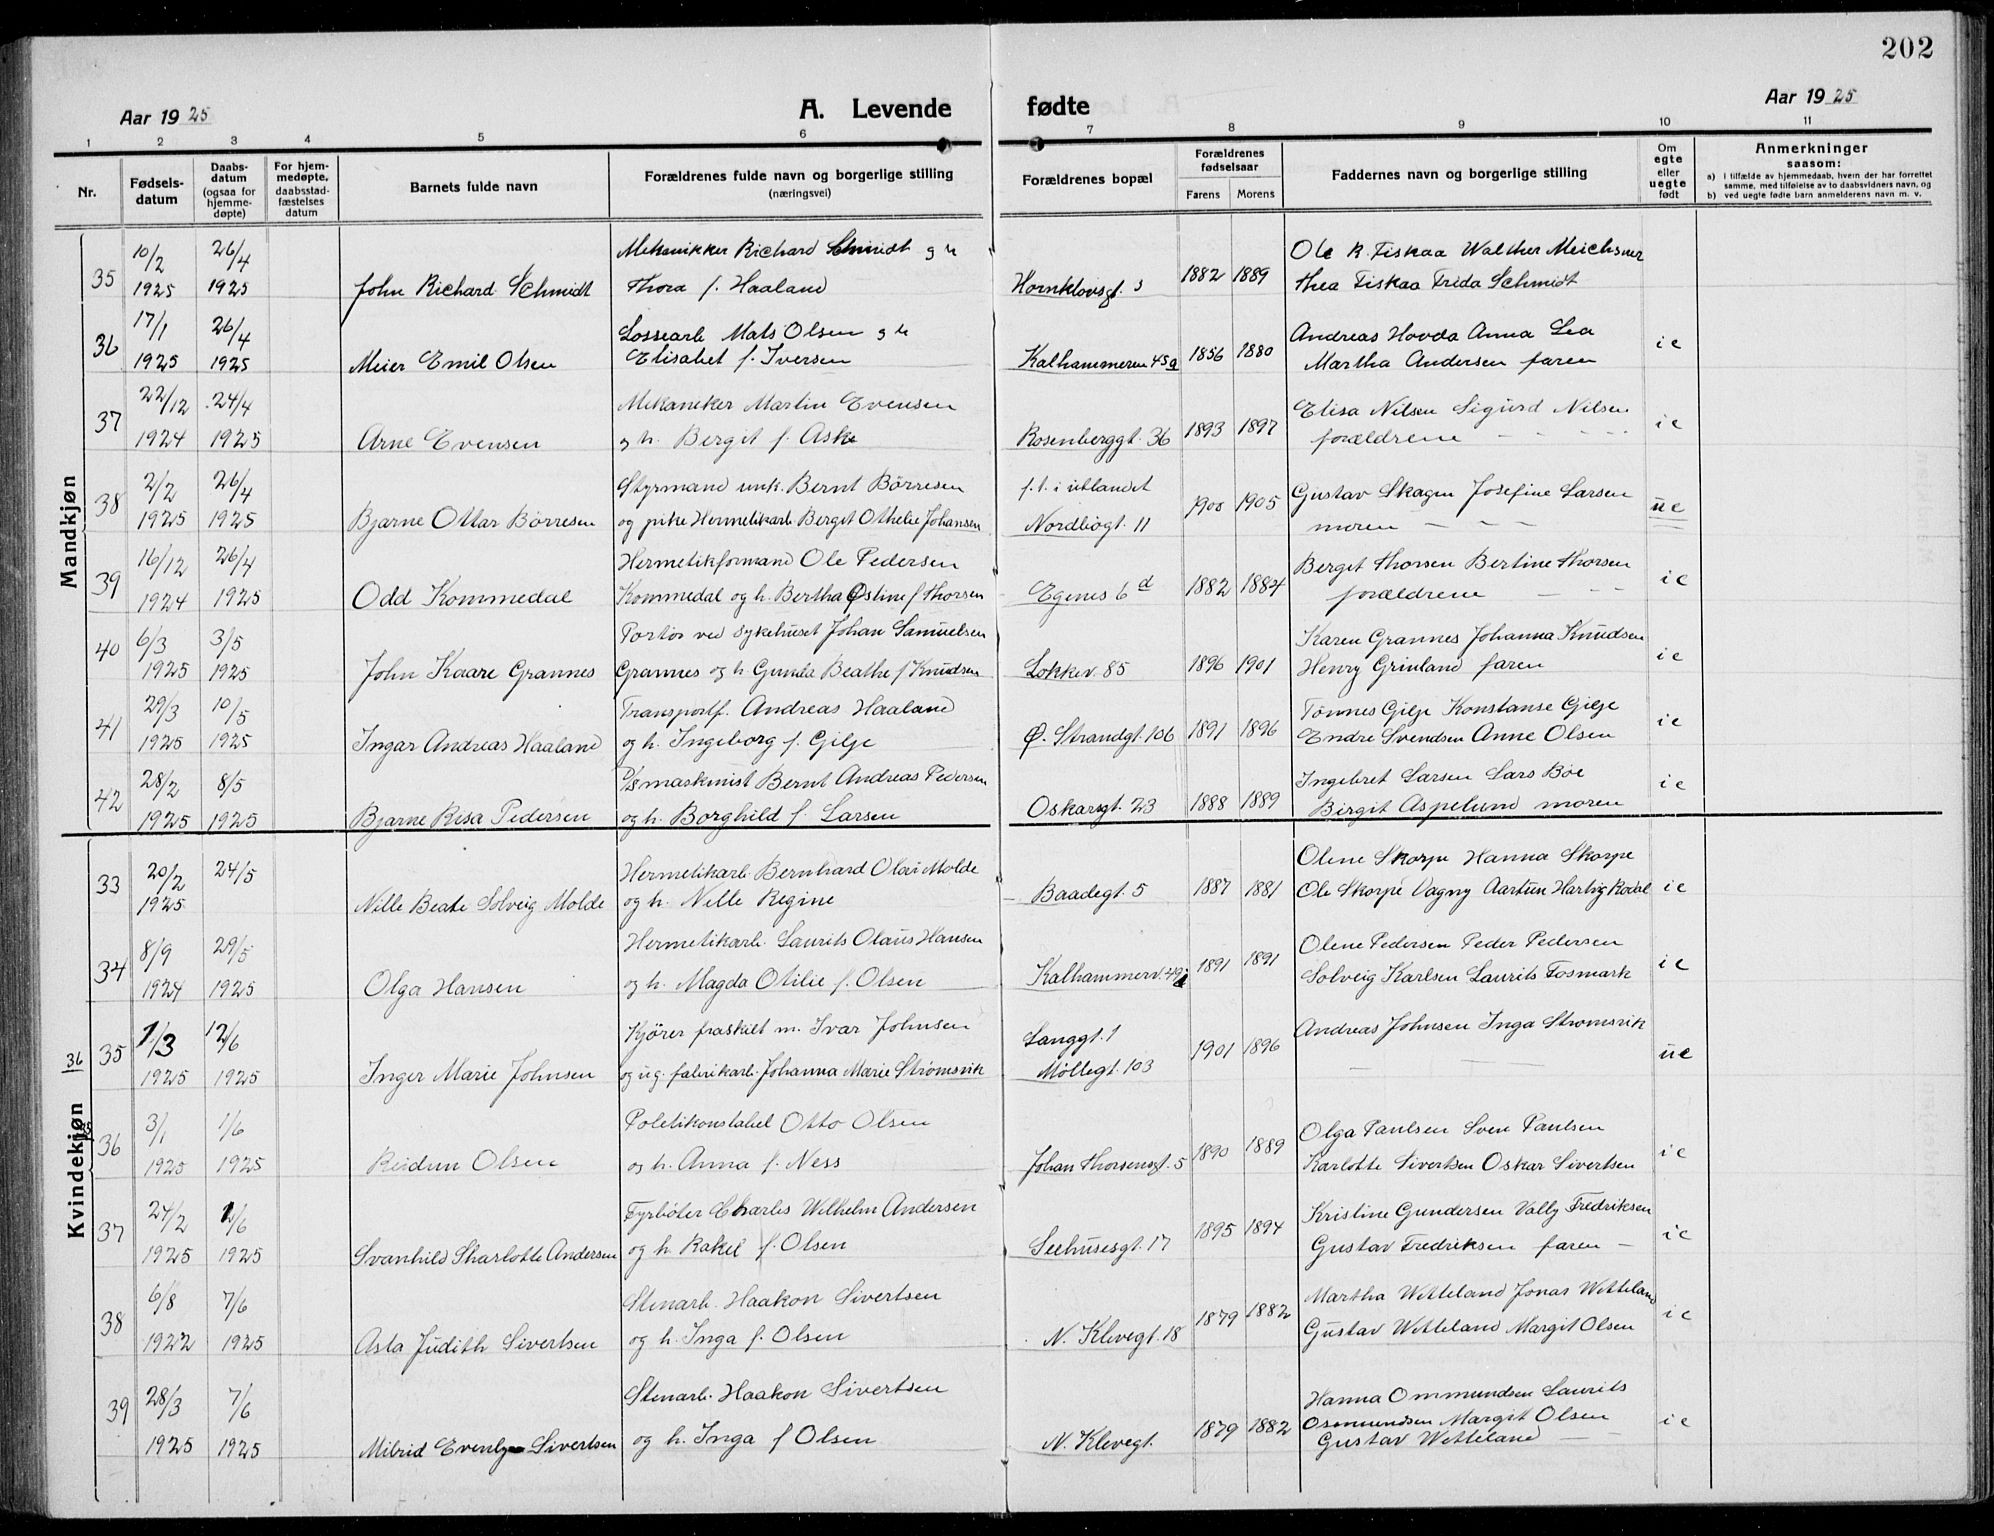 202
Aar 1925
A. Levende fødte
Aar 1925
1 2 3 4 5 6 7 8 9 10 11
Nr.
Fødsels-
datum
Daabs-
datum
(ogsaa for
hjemme-
døpte)
For hjem-
medøpte,
daabsstad-
fæstelses
datum
Barnets fulde navn
Forældrenes fulde navn og borgerlige stilling
(næringsvei)
Forældrenes bopæl
Forældrenes
fødselsaar
Farens Morens
Faddernes navn og borgerlige stilling
Om
egte
eller
uegte
født
Anmerkninger
saasom:
a) i tilfælde av hjemmedaab, hvem der har forrettet
samme, med tilføielse av to daabsvidners navn, og
b) ved uegte fødte barn anmelderens navn m. v.
Mandkjøn
35 10/2 26/4 Mekanikker Richard Schmidt g h Ole R. Fiskaa Walther Meichsner
1925 1925 John Richard Schmidt Thora f. Haaland Hornklovsgt. 3 1882 1889 Thea Fiskaa Freda Schmidt
36 17/1 26/4 Lossearb Mats Olsen g h Andreas Hovda Anna Lea i e
1925 1925 Meier Emil Olsen Elisabet f. Iversen Kalhammeren 45a 1856 1880 Martha Andersen faren
37 22/12 24/4 Mekaneker Martin Evensen Elisa Nilsen Sigurd Nilsen i e
1924 1925 Arne Evensen og h. Bergit f. Aske Rosenberggt. 36 1893 1897 forældrene
38 2/2 26/4 Styrmand unk. Bernt Børresen f. t. i utlandet 1900 1905 Gustav Skagen Josefine Larsen ue
1925 1925 Bjarne Ottar Børresen og pike Hermetikarb Bergit Othelie Johansen Nordbøgt. 11 moren
39 16/12 26/4 Hermetikformand Ole Pedersen Bergit Thorsen Bertine Thorsen i e
1924 1925 Odd Kommedal Kommedal og h. Bertha Østine f Thorsen Egenes 6 d 1882 1884 forældrene
40 6/3 3/5 Portør ved sykehuset Johan Samuelsen Karen Grannes Johanna Knudsen i e
1925 1925 John Kaare Grannes Grannes og h Gunda Beathe f Knudsen Lokkev. 85 1896 1901 Henry Grinland faren
41 29/3 10/5 Transportf. Andreas Haaland Tönnes Gilje Konstanse Gilje i e
1925 1925 Ingar Andreas Haaland og h. Ingeborg f. Gilje Ø. Strandgt. 106 1891 1896 Endre Svendsen Anne Olsen
42 28/2 8/5 D/smaskinist Bernt Andreas Pedersen Ingebret Larsen Lars Bøe i e
1925 1925 Bjarne Risa Pedersen og h. Borghild f. Larsen Oskarsgt. 23 1888 1889 Birgit Aspelund moren
Kvindekjøn
33 20/2 24/5 Hermetikarb. Bernhard Olai Molde Olene Skorpe Hanna Skorpe
1925 Nille Beate Solveig Molde og h. Nille Regine Baadegt. 5 1887 1881 Ole Skorpe Dagny Aartun Hartvig Rodal i e
34 8/9 29/5 Hermetikarb. Laurits Olaus Hansen Olene Pedersen Peder Pedersen
1924 1925 Olga Hansen og h. Magda Otilie f. Olsen Kalhammerv. 49 1891 1891 Solveig Karlsen Laurits Fosmark i e
36
35 1/3 12/6 Kjører fraskilt m. Ivar Johnsen Langgt. 1 1901 1896 Andreas Johnsen Inga Strømsvik ue
1925 1925 Inger Marie Johnsen og ug. fabrikarb. Johanna Marie Strømsvik Møllegt. 103
35
36 3/1 1/6 Politikonstabel Otto Olsen Olga Paulsen Sven Paulsen
1925 1925 Reidun Olsen og h. Anna f. Ness Johan Thorsensgt. 5 1890 1889 Karlotte Sivertsen Oskar Sivertsen i e
37 24/2 1/6 Fyrbøter Charles Wilhelm Andersen Kristine Gundersen Vally Fredriksen
1925 1925 Svanhild Sharlotte Andersen og h. Rakel f. Olsen Seehusesgt. 17 1895 1894 Gustav Fredriksen faren i e
38 6/8 7/6 Stenarb. Haakon Sivertsen Martha Wetteland Jonas Wetteland
1922 1925 Asta Judith Sivertsen og h. Inga f. Olsen N. Klevegt. 18 1879 1882 Gustav Wetteland Margit Olsen i e
39 28/3 7/6 Stenarb. Haakon Sivertsen Hanna Ommundsen Laurits
1925 1925 Milrid Sivertsen og h. Inga f Olsen N. Klevegt. 1879 1882 Ommundsen Margit Olsen i e
Gustav Wetteland